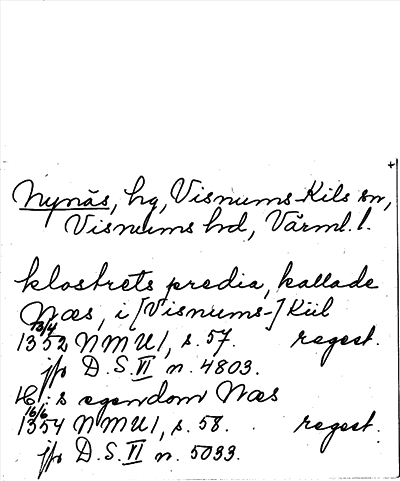 Nynäs, hg, Visnums-Kils sn,
Visnums hd, Värml. l.
klostrets predia, kallade
Næs, i [Visnums-] Kiil
13/4
1352 NMU1, s. 57. regest.
jfr D.S. VI n. 4803.
s egendom Næs
16/6
1354 NMU1, s. 58. regest.
jfr D.S. VI n. 5033.